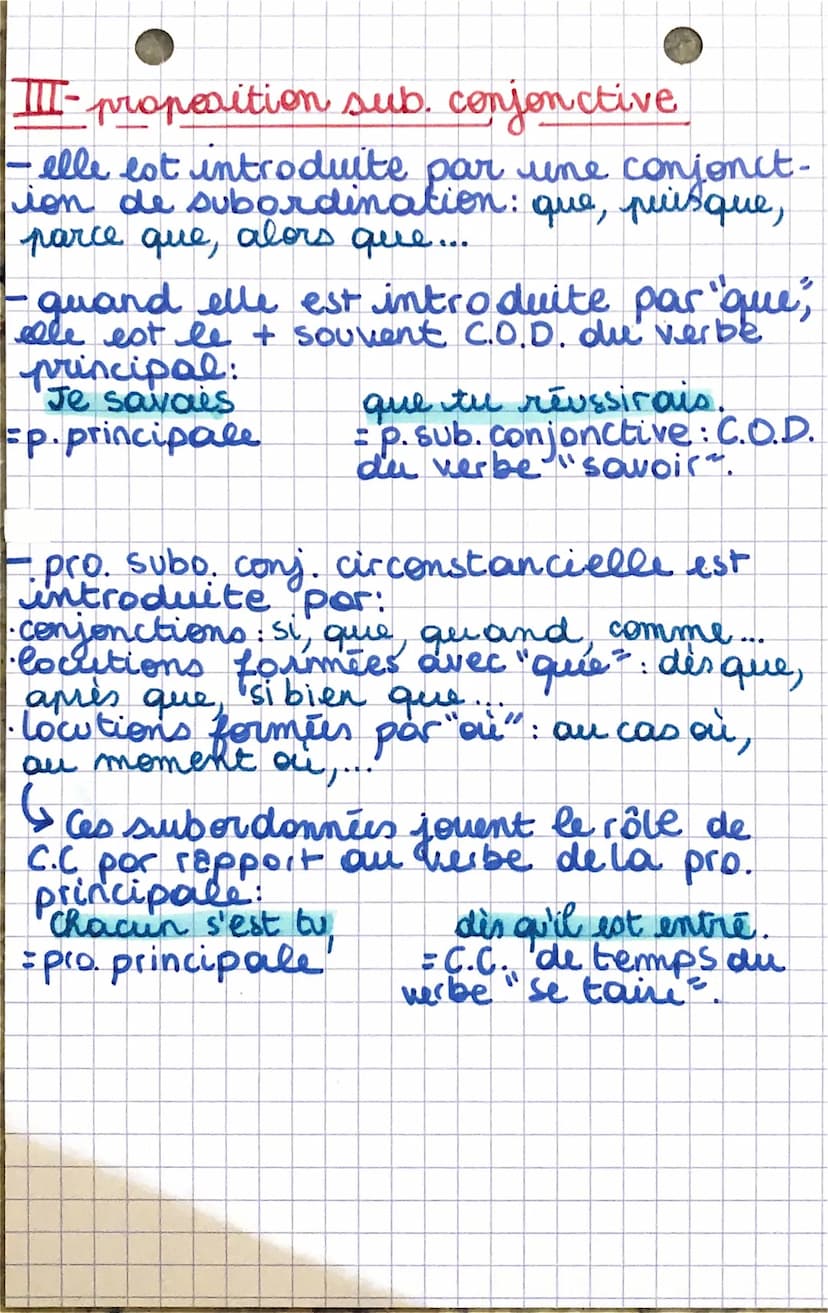 III- proposition sub. conjonctive
- elle est introduite par une conjonct-
ion de subordination : que, puisque,
parce que, alors que...
- quand elle est introduite par "que",
elle est le + souvent C.O.D. du verbe
principal :
Je savais que tu réussirais.
= p. principale = p. sub. conjonctive : C.O.D.
du verbe "savoir".
- pro. subo. conj. circonstancielle est
introduite par :
· conjonctions : si, que, quand, comme...
· locutions formées avec "que" : dès que,
après que, si bien que...
· locutions formées par "où" : au cas où,
au moment où,...
↳ Ces subordonnées jouent le rôle de
C.C par rapport au verbe de la pro.
principale :
Chacun s'est tu, dès qu'il est entré.
= pro. principale = C.C. de temps du
verbe "se taire".